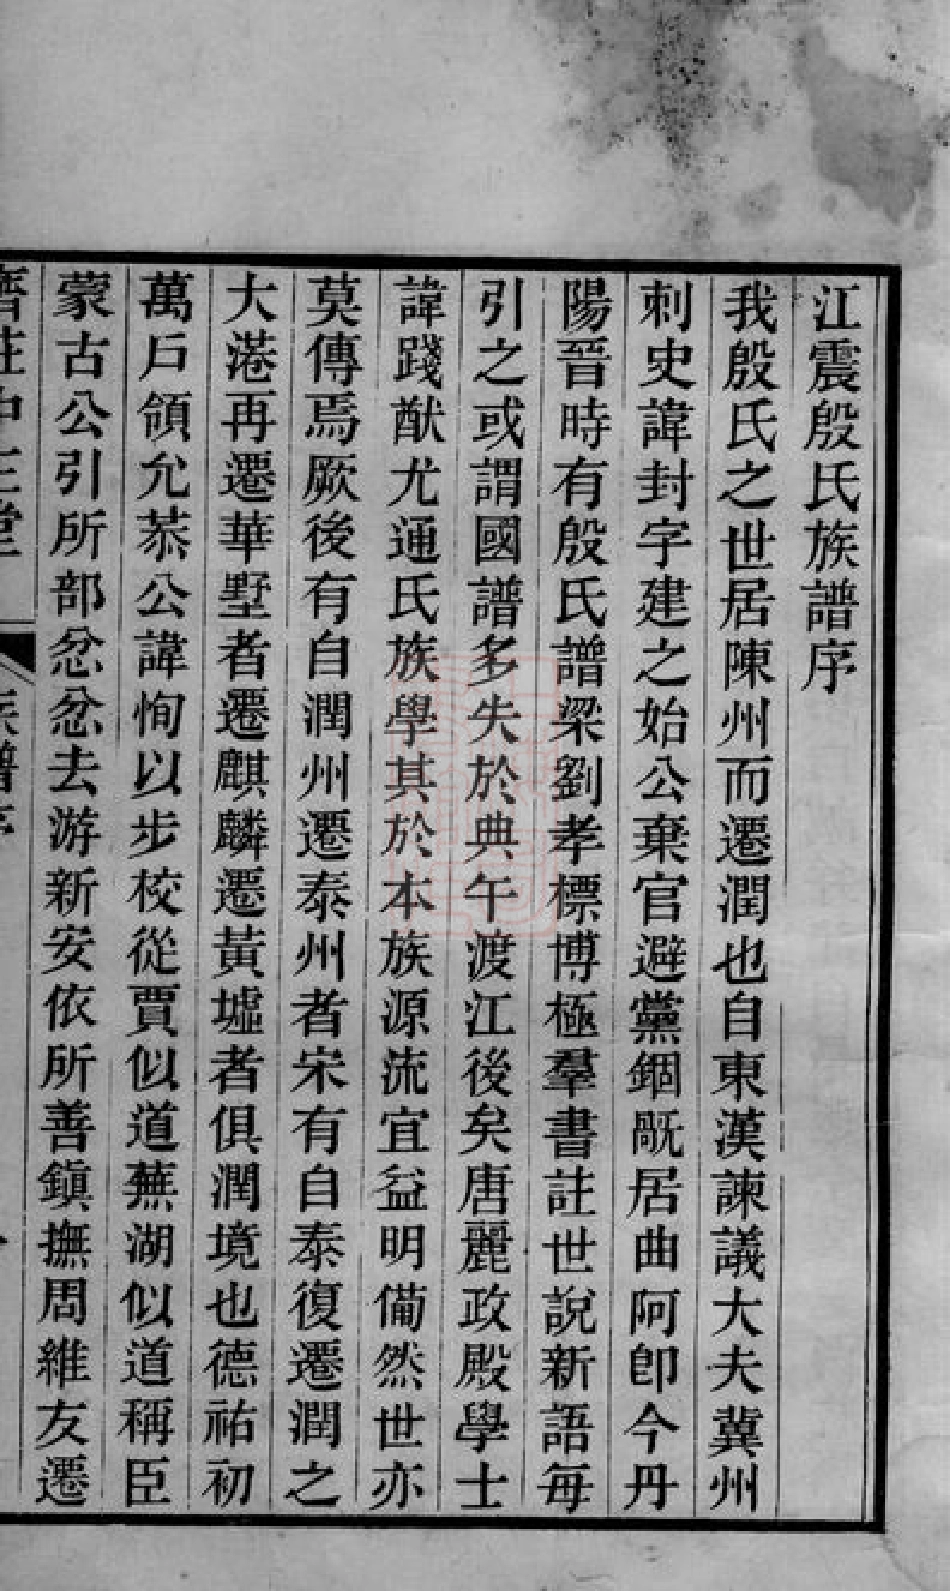 江震殷氏族譜序
我殷氏之世居陳州而遷潤也自東漢諫議大夫冀州
刺史諱封字建之始公棄官避黨錮旤居曲阿卽今丹
陽晉時有殷氏譜梁劉孝標博極羣書註世說新語每
引之或謂國譜多失於典午渡江後矣唐麗政殿學士
諱踐猷尤通氏族學其於本族源流宜益明備然世亦
莫傳焉厥後有自潤州遷泰州者宋有自泰復遷潤之
大港再遷華墅者遷麒麟遷黃墟者俱潤境也德祐初
萬戶領允恭公諱恂以步校從賈似道蕪湖似道稱臣
蒙古公引所部忿忿去游新安依所善鎭撫周維友遷
族譜序